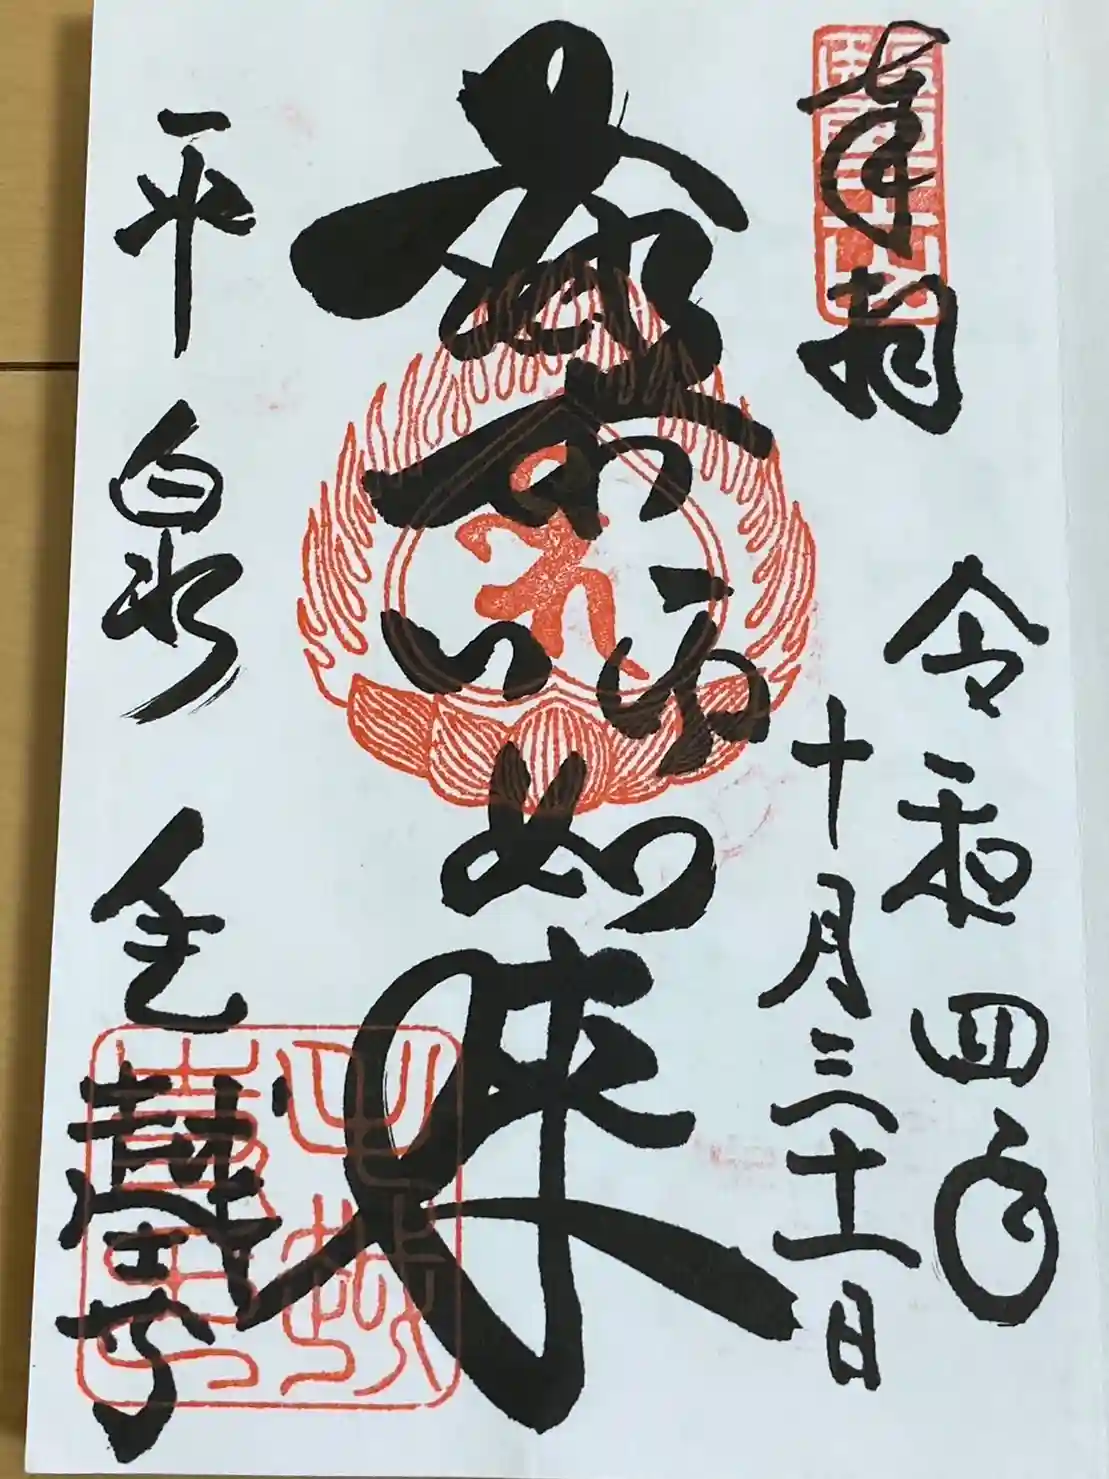 奉拝
令和四年
十月三十一日
薬師如来
平泉 毛越寺